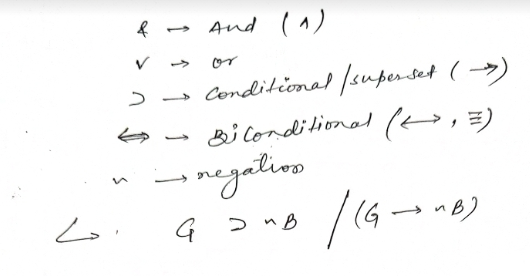 & → And (∧)
∨ → or
⊃ → Conditional/superset (→)
⇔ → Biconditional (↔, ≡)
~ → negation
G ⊃ ~B / (G → ~B)